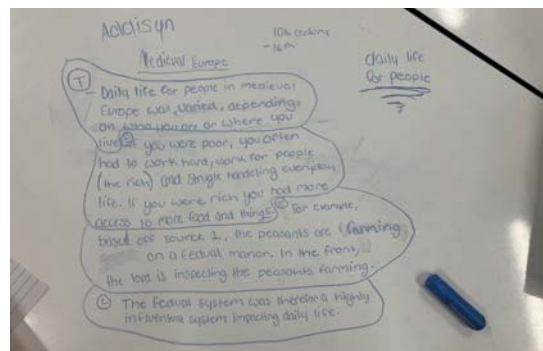 Addisyn
10th century
- 16th
Medieval Europe
daily life
for people
T
Daily life for people in medieval
Europe was varied, depending
on who you are or where you
live. E If you were poor, you often
had to work hard, work for people
(the rich) and strugle handeling everyday
life. If you were rich you had more
access to more food and things. E For example,
based off source 1, the peasants are farming
on a fedual manor. In the front,
the lord is inspecting the peasants farming.
L The fedual system was therefor a highly
influential system impacting daily life.